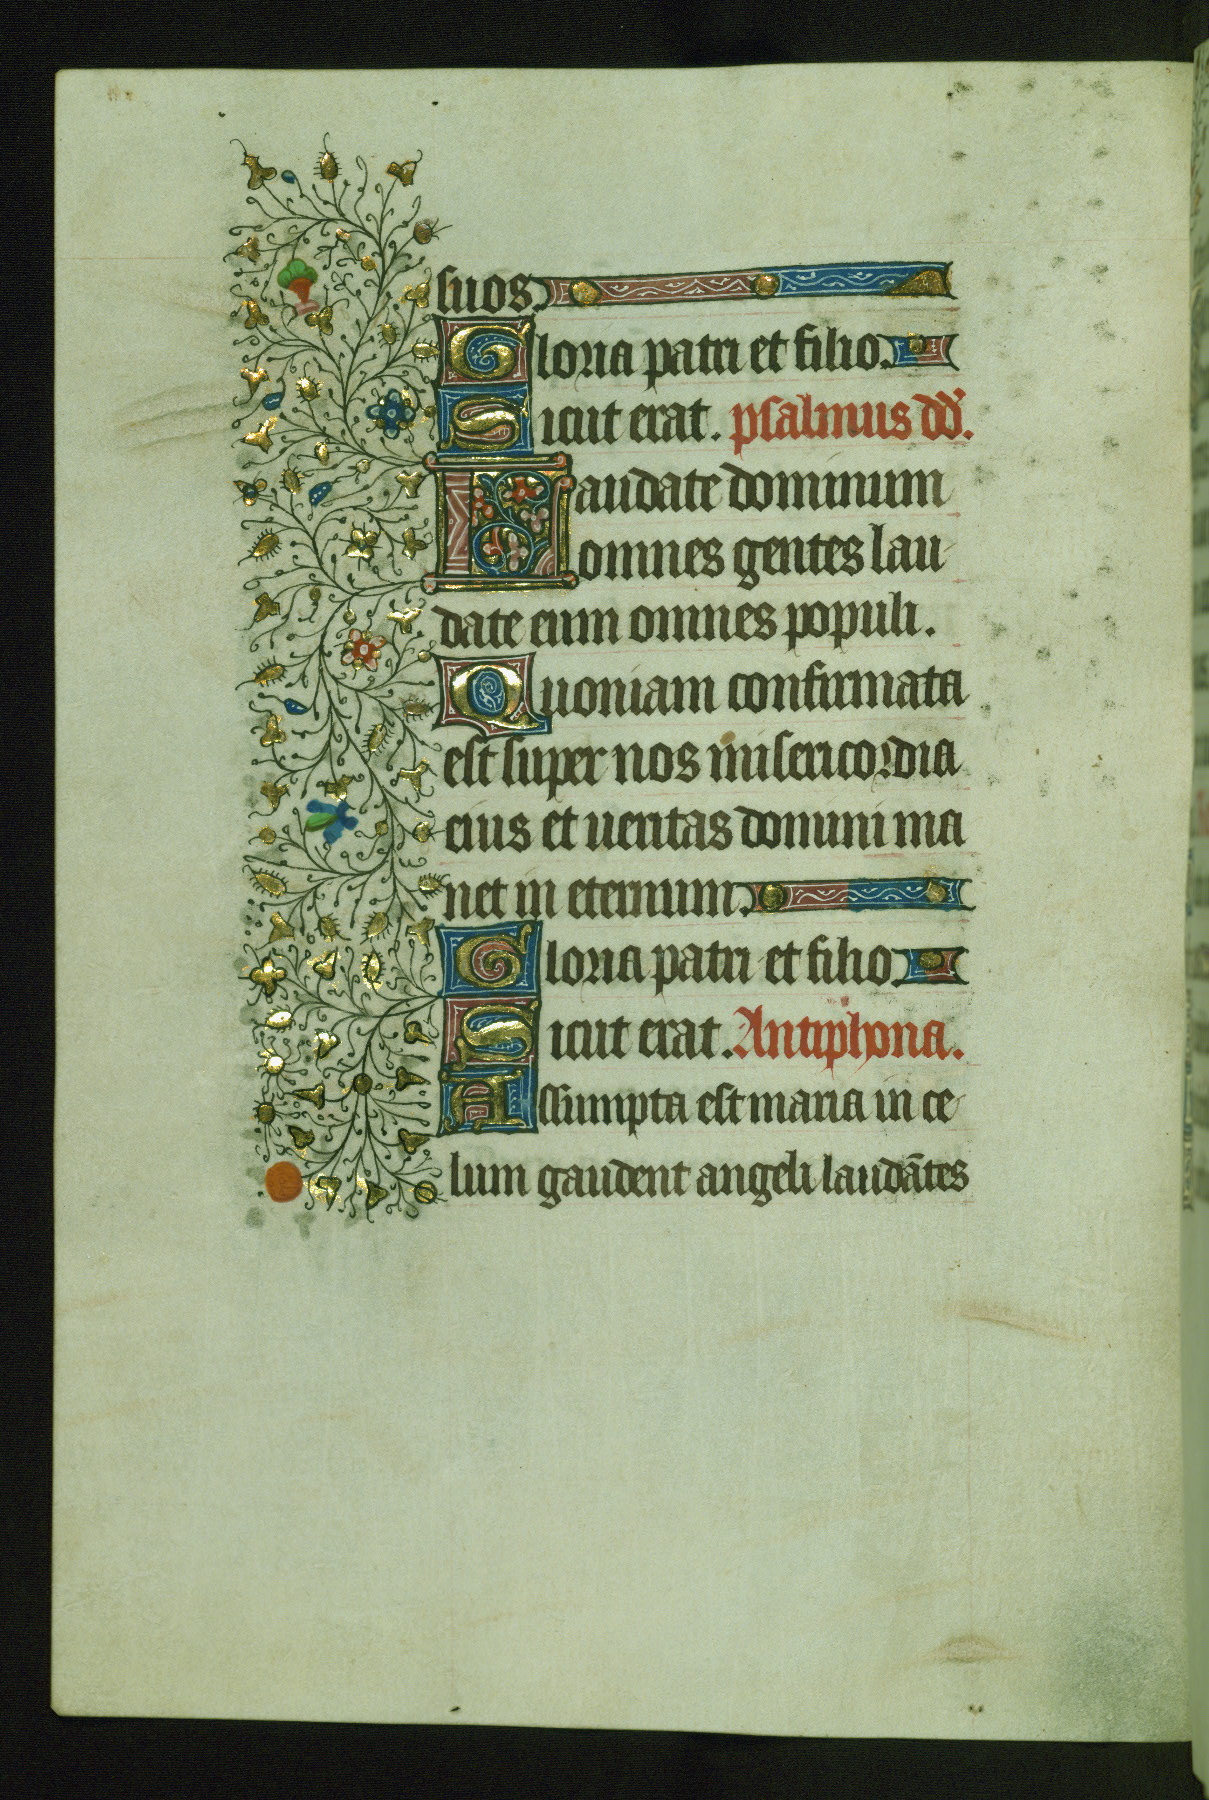 suos.
Gloria patri et filio.
Sicut erat. psalmus dd̄.
Laudate dominum
omnes gentes lau-
date eum omnes populi.
Quoniam confirmata
est super nos misericordia
eius et ueritas domini ma
net in eternum.
Gloria patri et filio.
Sicut erat. Antiphona.
Assumpta est maria in ce-
lum gaudent angeli laudātes